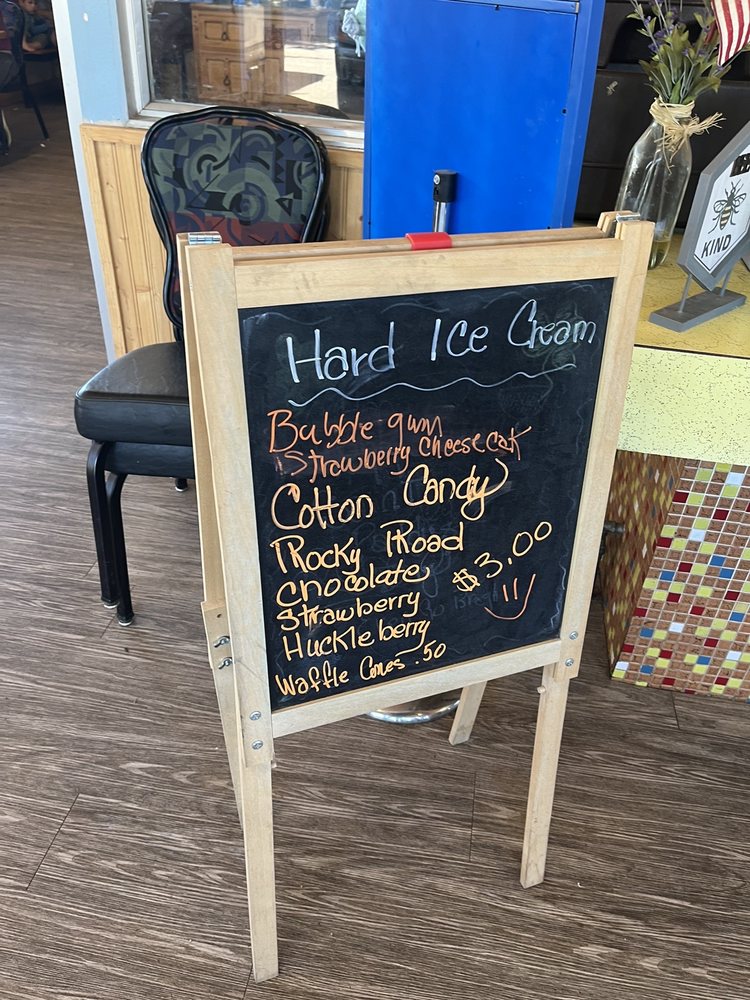 Hard Ice Cream
Bubble gum
Strawberry Cheese cak
Cotton Candy
Rocky Road
Chocolate
$3.00
Strawberry
Huckleberry
Waffle Cones .50
KIND